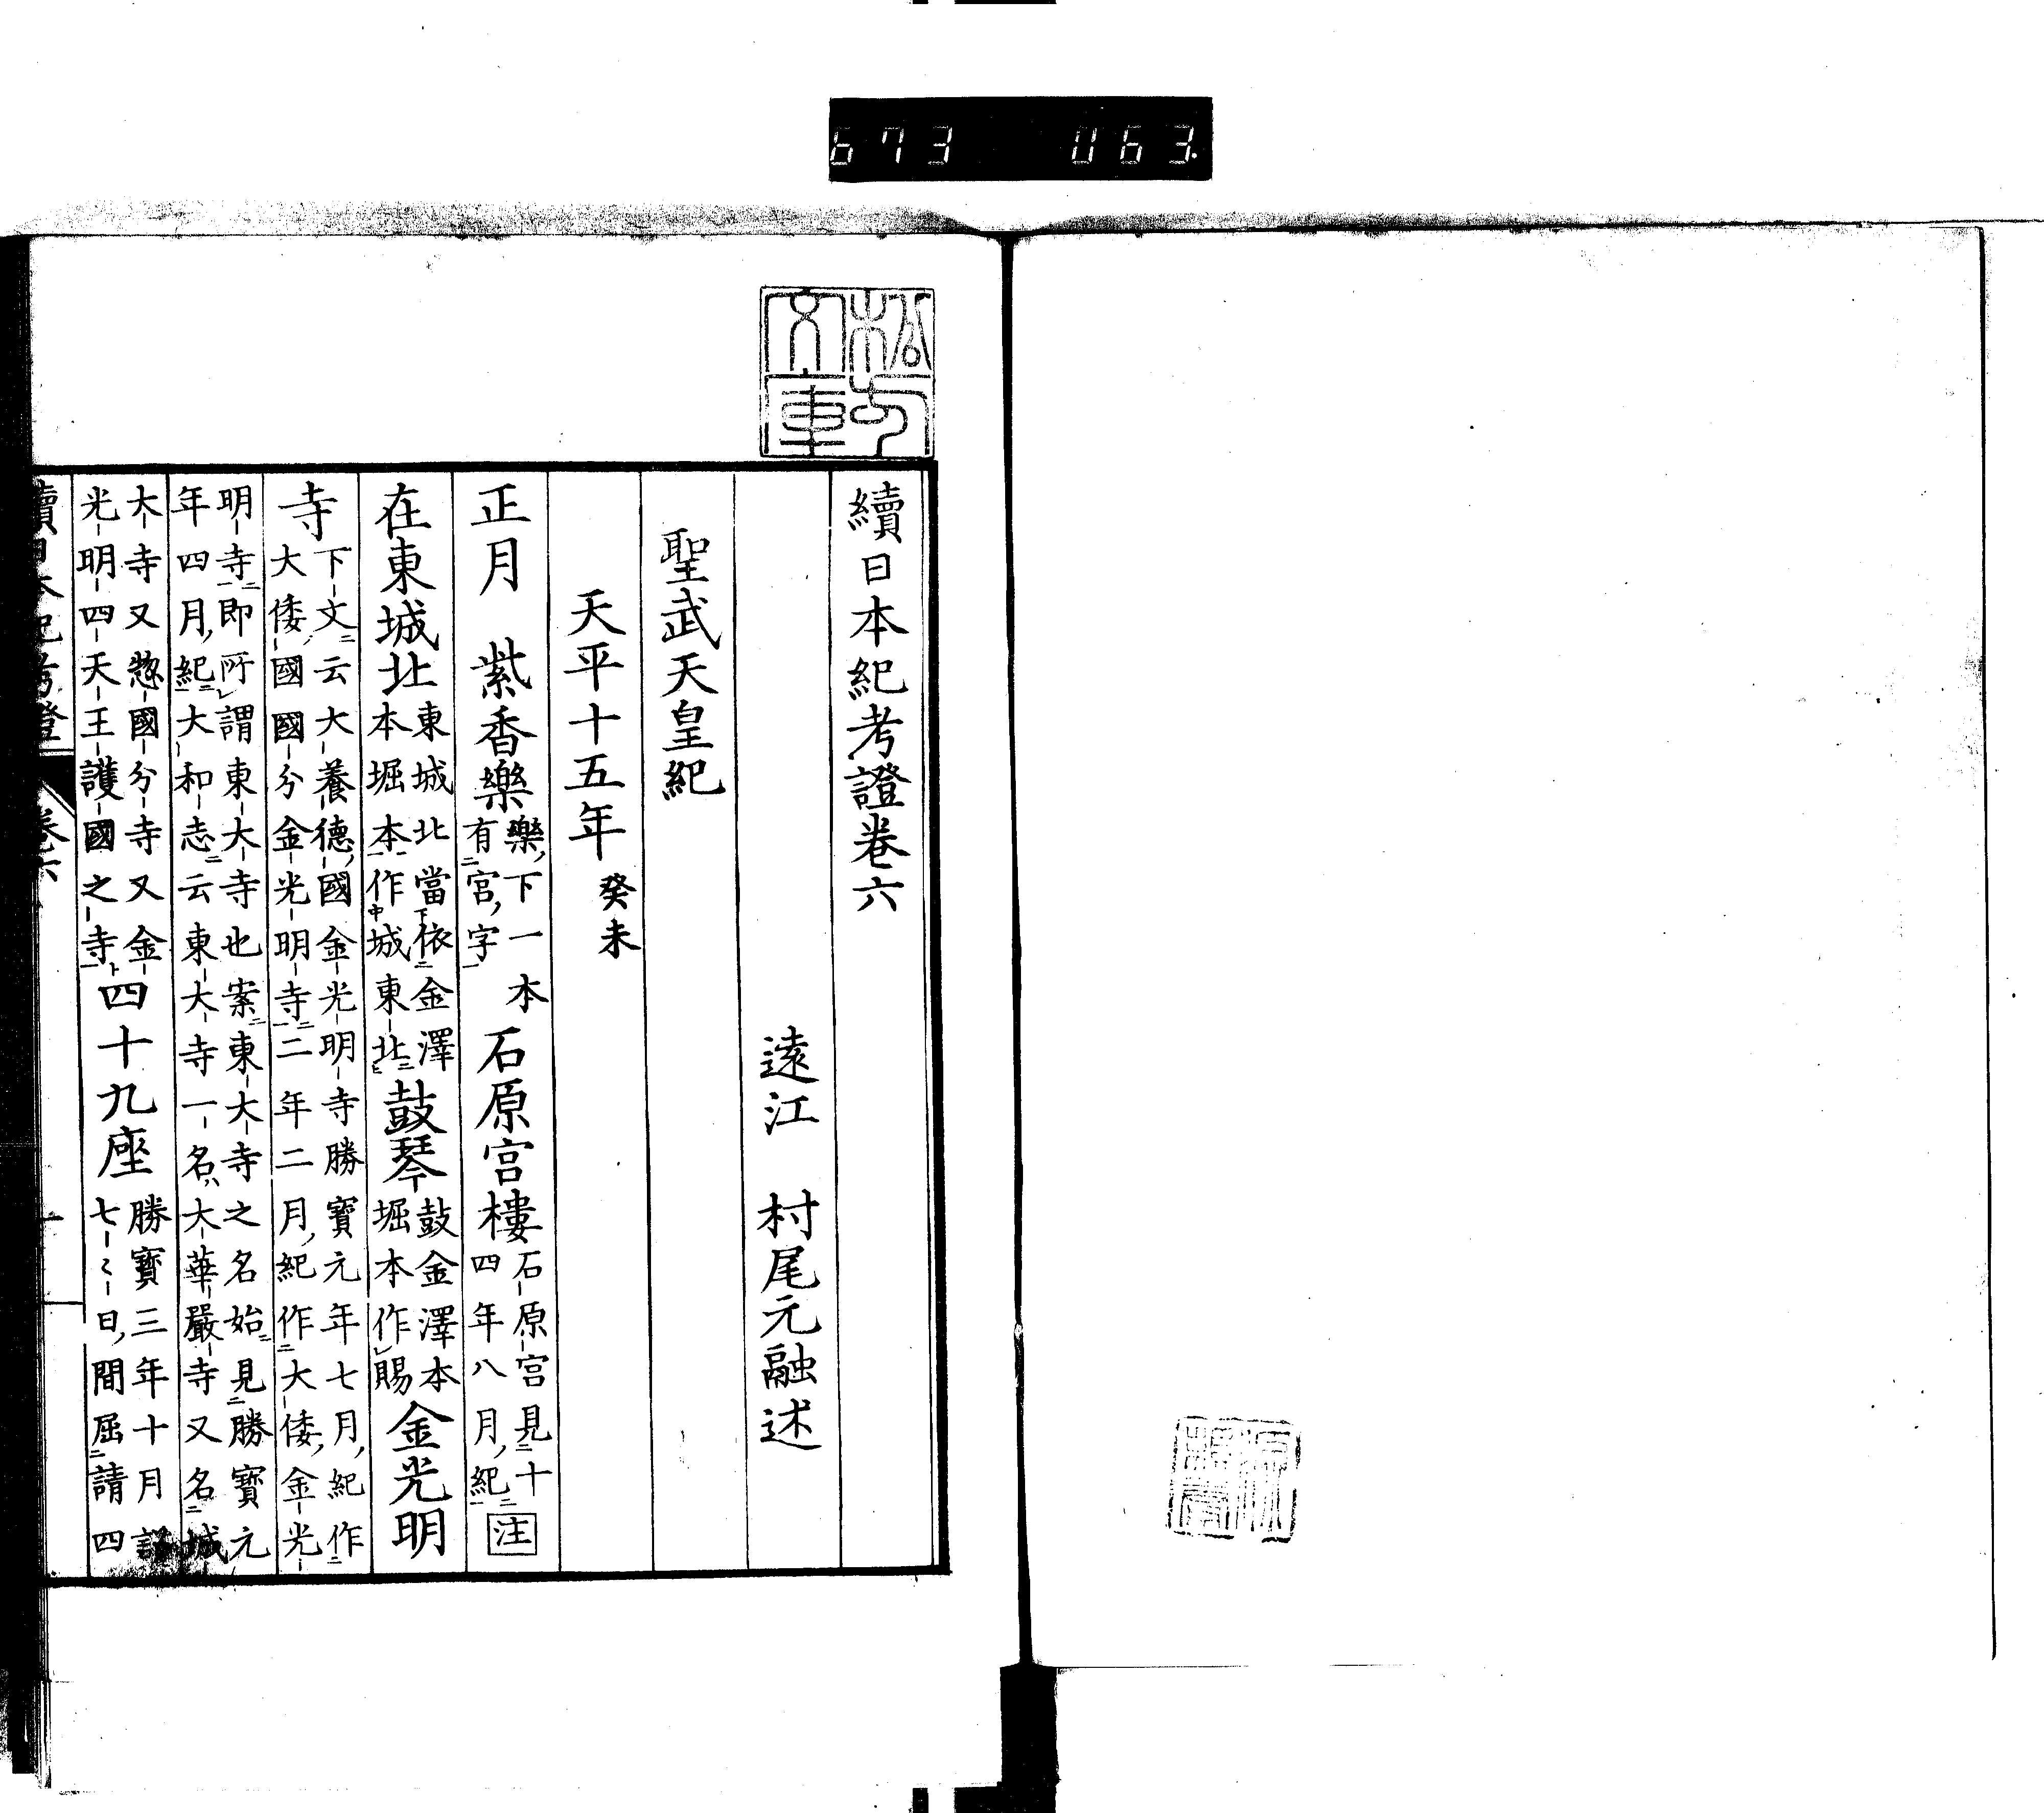 673 063.
松方文庫
續日本紀考證卷六
遠江 村尾元融述
聖武天皇紀
天平十五年癸未
正月 紫香樂樂下一本有宮字 石原宮樓石原宮見十四年八月紀 注
在東城北東城北當依金澤本堀本作城東北鼓琴鼓金澤本堀本作賜金光明
寺下文云大養德國金光明寺勝寶元年七月紀作大倭國國分金光明寺二年二月紀作大倭金光
明寺即所謂東大寺也案東大寺之名始見勝寶元年四月紀大和志云東大寺一名大華嚴寺又名城
大寺又惣國分寺又金光明四天王護國之寺四十九座勝寶三年十月詔七〻日間屈請四
續日本紀考證 卷六 一